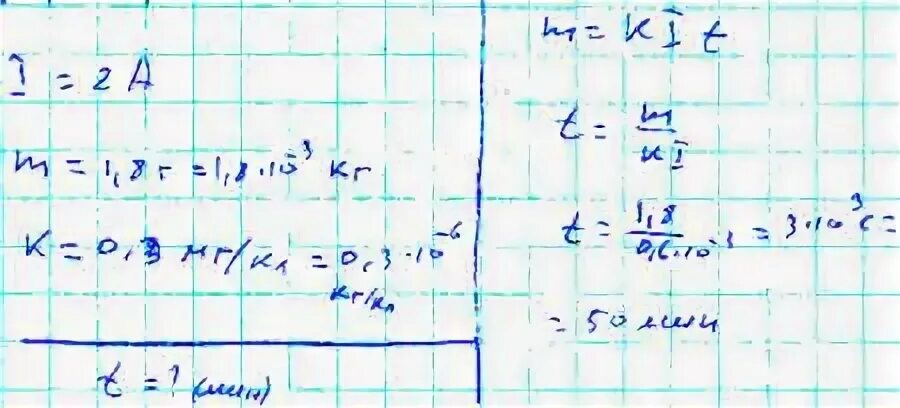 I = 2 А
m = 1,8 г = 1,8·10⁻³ кг
K = 0,3 мг/кл = 0,3·10⁻⁶
кг/кл
t = ? (мин)
m = K I t
t = m / K I
t = 1,8 / 0,6·10⁻³ = 3·10³ с =
= 50 мин